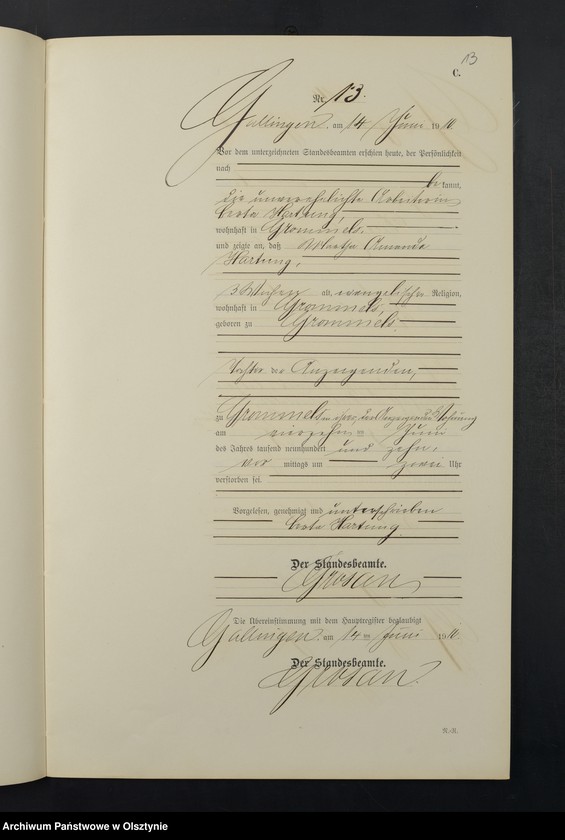 13
C.
Nr. 13.
Gallingen, am 14 Juni 1910.
Vor dem unterzeichneten Standesbeamten erschien heute, der Persönlichkeit
nach
be kannt,
die unverehelichte Arbeiterin
Hartung,
wohnhaft in Grommels,
und zeigte an, daß Martha Amanda
Hartung,
3 Wochen alt, evangelischer Religion,
wohnhaft in Grommels,
geboren zu Grommels,
Tochter der Anzeigenden,
zu Grommels in der Anzeigenden Wohnung
am vierzehnten Juni
des Jahres tausend neunhundert und zehn,
vor mittags um zwei Uhr
verstorben sei.
Vorgelesen, genehmigt und unterschrieben
Hartung
Der Standesbeamte.
Grosan
Die Übereinstimmung mit dem Hauptregister beglaubigt
Gallingen, am 14ten Juni 1910.
Der Standesbeamte.
Grosan.
R.-R.
Archiwum Państwowe w Olsztynie